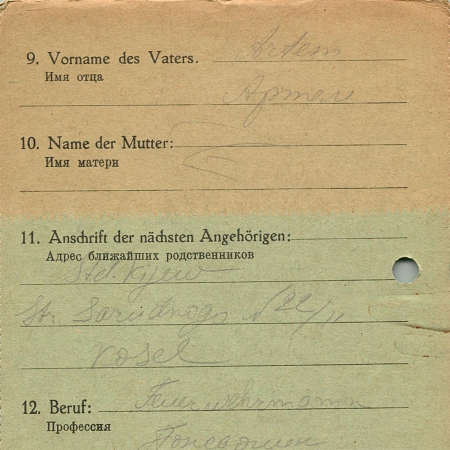 9. Vorname des Vaters. Artem
Имя отца
Артем
10. Name der Mutter:
Имя матери
11. Anschrift der nächsten Angehörigen:
Адрес ближайших родственников
Std. Kijew
Str.
12. Beruf: Feuerwehrmann
Профессия